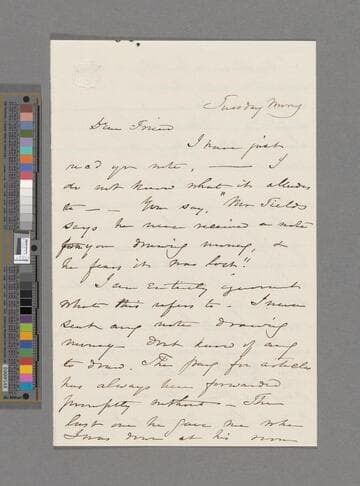 Tuesday Morng
Dear Friend
I have just
read yr note, — I
do not know what it alludes
to — — You say, "Mr Fields
says he never received a note
from you drawing money, &
he fears it was lost".
I am Entirely ignorant
what this refers to - I never
sent any note drawing
money - dont know of any
to draw. The pay for articles
has always been forwarded
promptly without — The
last one he gave me when
I was down at his room